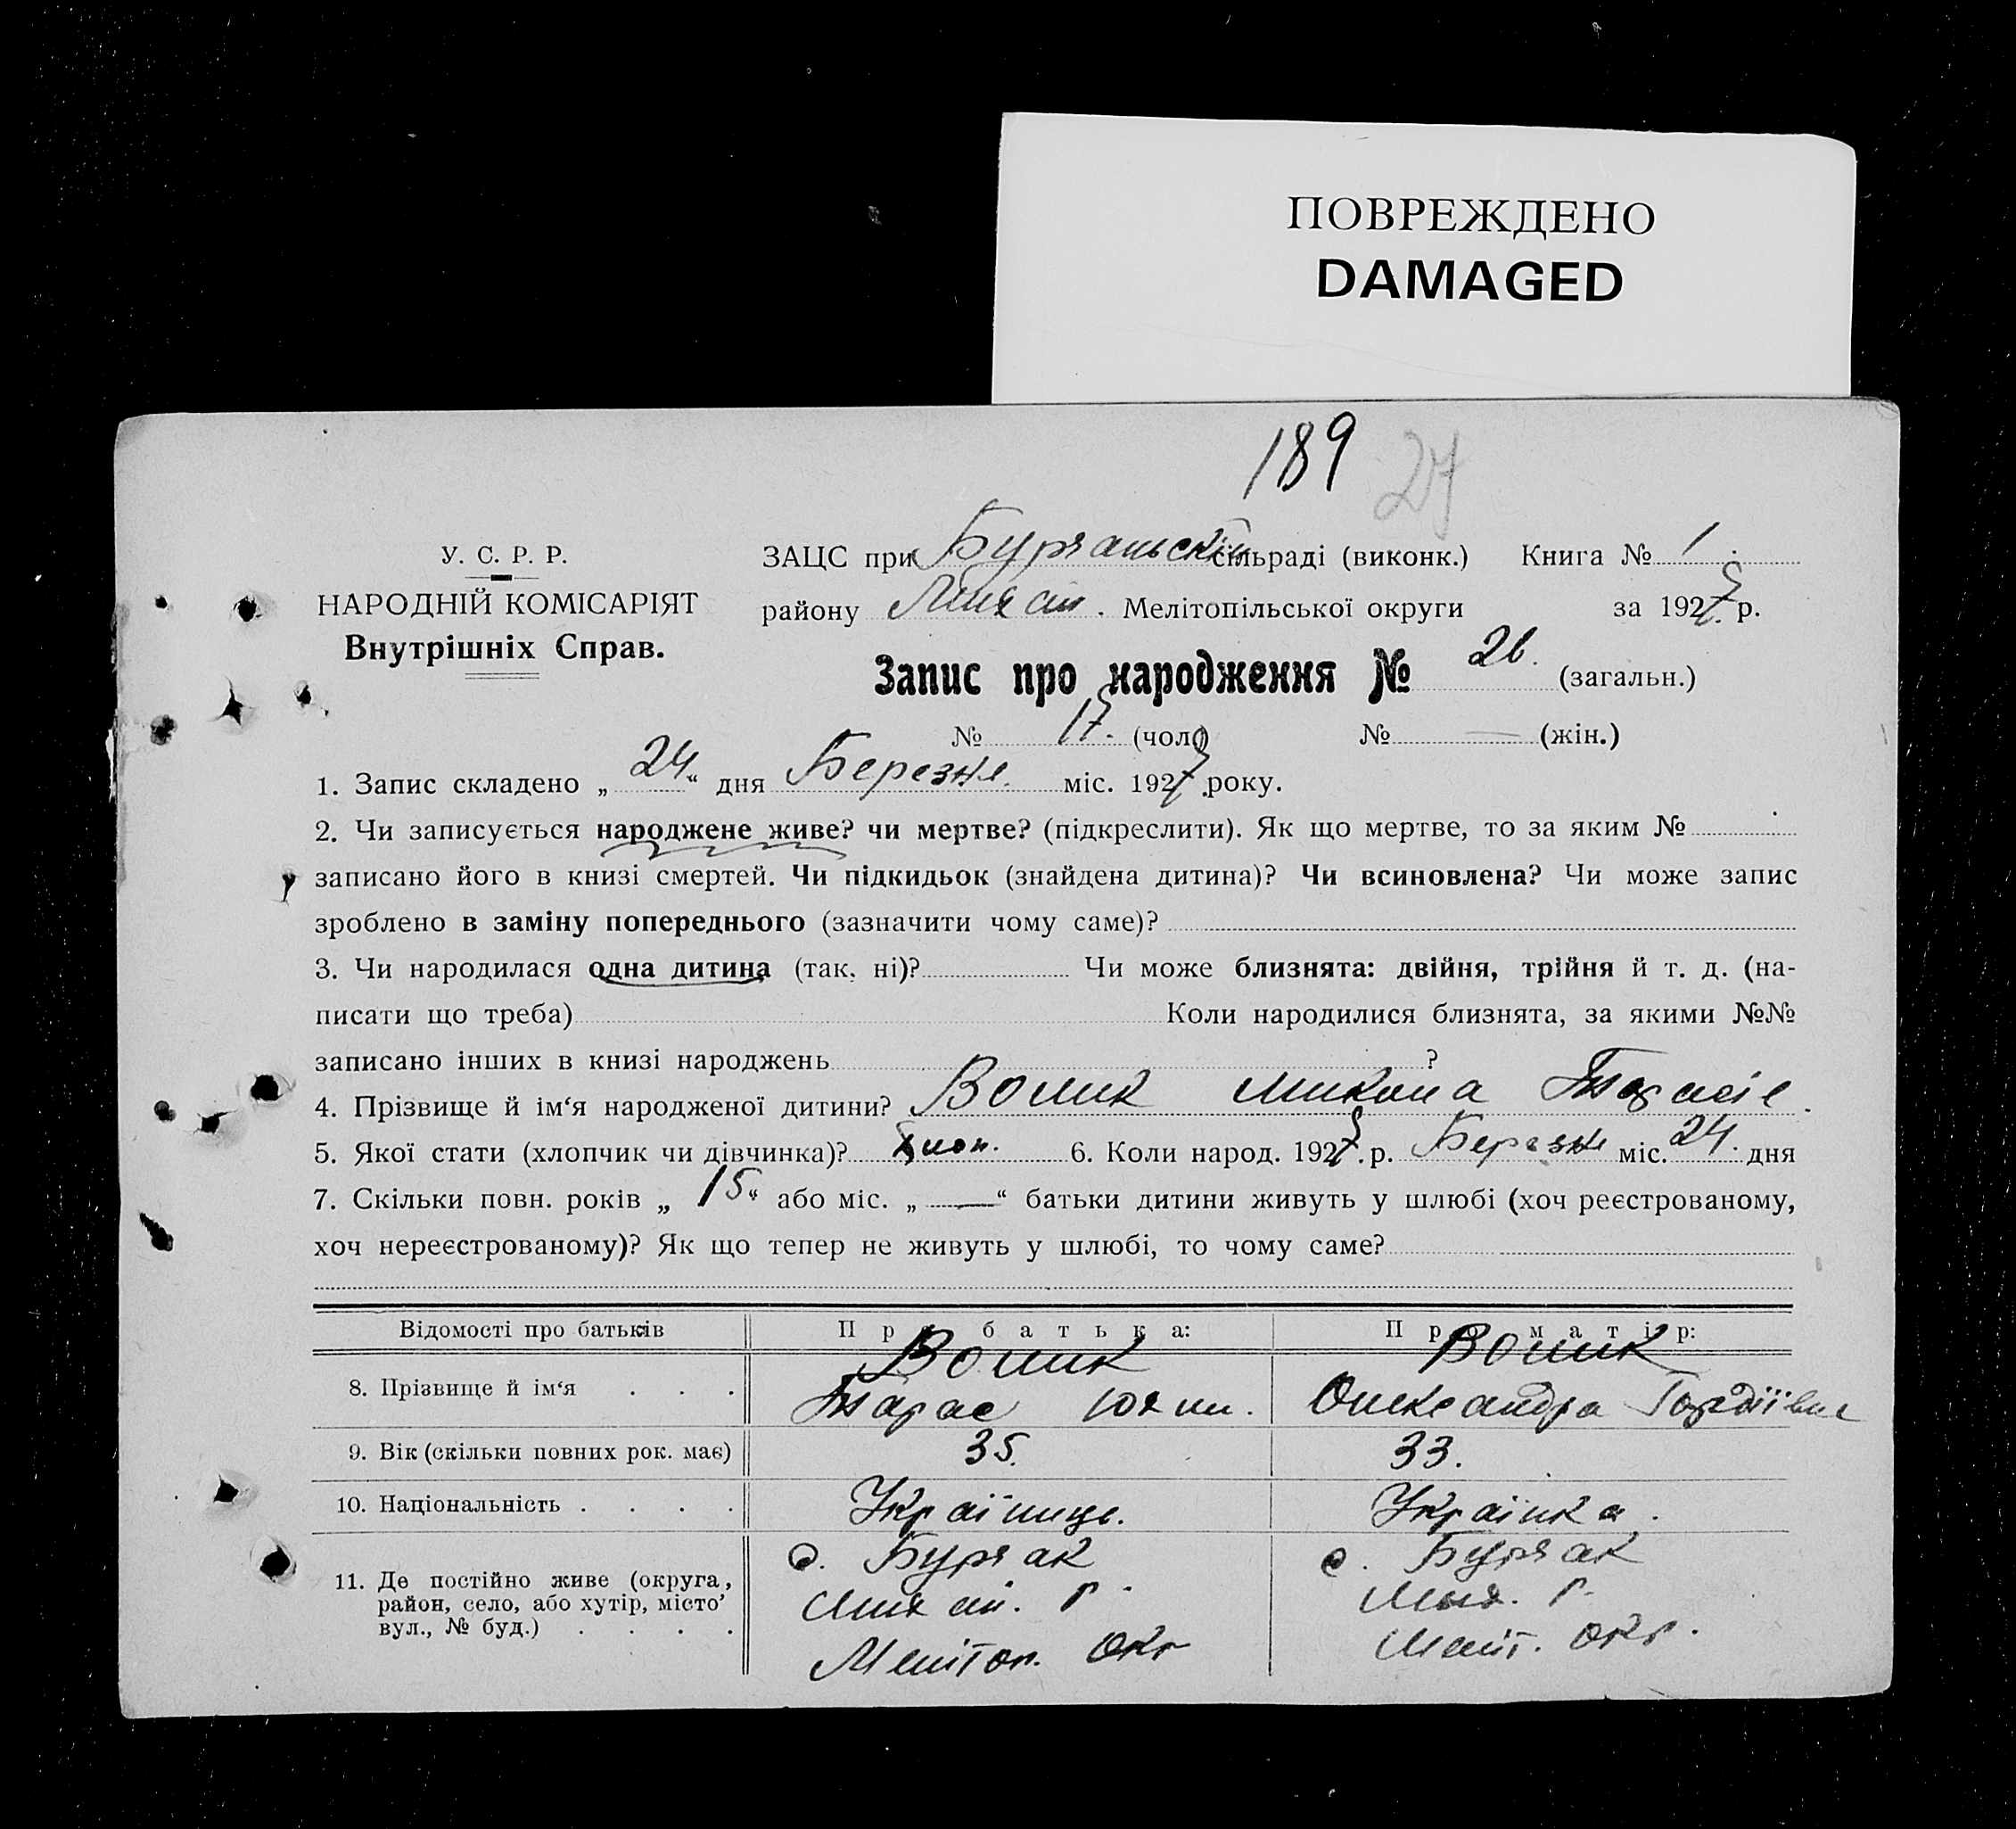 ПОВРЕЖДЕНО
DAMAGED
189 27
У. С. Р. Р.
НАРОДНІЙ КОМІСАРІЯТ
Внутрішніх Справ.
ЗАЦС при Бурчацьскій сільраді (виконк.) Книга № 1.
району Мих сй. Мелітопільської округи за 1927 р.
Запис про народження № 26. (загальн.)
№ 17. (чол.) № — (жін.)
1. Запис складено „ 24 “ дня Березня. міс. 1927 року.
2. Чи записується народжене живе? чи мертве? (підкреслити). Як що мертве, то за яким №
записано його в книзі смертей. Чи підкидьок (знайдена дитина)? Чи всиновлена? Чи може запис
зроблено в заміну попереднього (зазначити чому саме)?
3. Чи народилася одна дитина (так, ні)? Чи може близнята: двійня, трійня й т. д. (на-
писати що треба) Коли народилися близнята, за якими №№
записано інших в книзі народжень ?
4. Прізвище й ім‘я народженої дитини? Волик Микола
5. Якої стати (хлопчик чи дівчинка)? Хлоп. 6. Коли народ. 1927. р. Березня міс. 24. дня
7. Скільки повн. років „ 15 “ або міс. „ — “ батьки дитини живуть у шлюбі (хоч реєстрованому,
хоч нереєстрованому)? Як що тепер не живуть у шлюбі, то чому саме?
Відомості про батьків Про батька: Про матір:
8. Прізвище й ім‘я . . . Волик Волик
Тарас Юхим. Олександра Гордіївна
9. Вік (скільки повних рок. має) 35. 33.
10. Національність . . . . Українець. Українка.
11. Де постійно живе (округа, с. Бурчак с. Бурчак
район, село, або хутір, місто’ Мих сй. р. Мих. р.
вул., № буд.) . . . . Мелітоп. Окр Меліт. Окр.